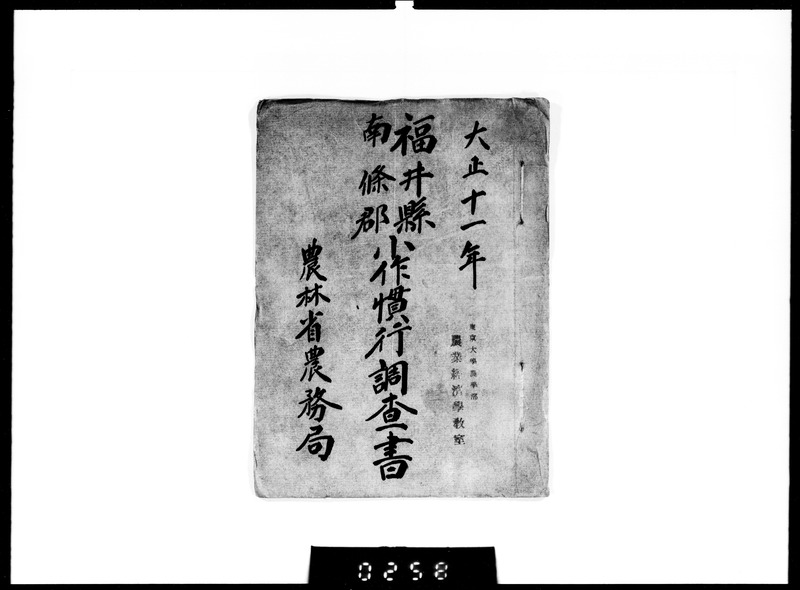 大正十一年
東京大學農學部
農業経済學教室
福井縣
南條郡
小作慣行調查書
農林省農務局
0258